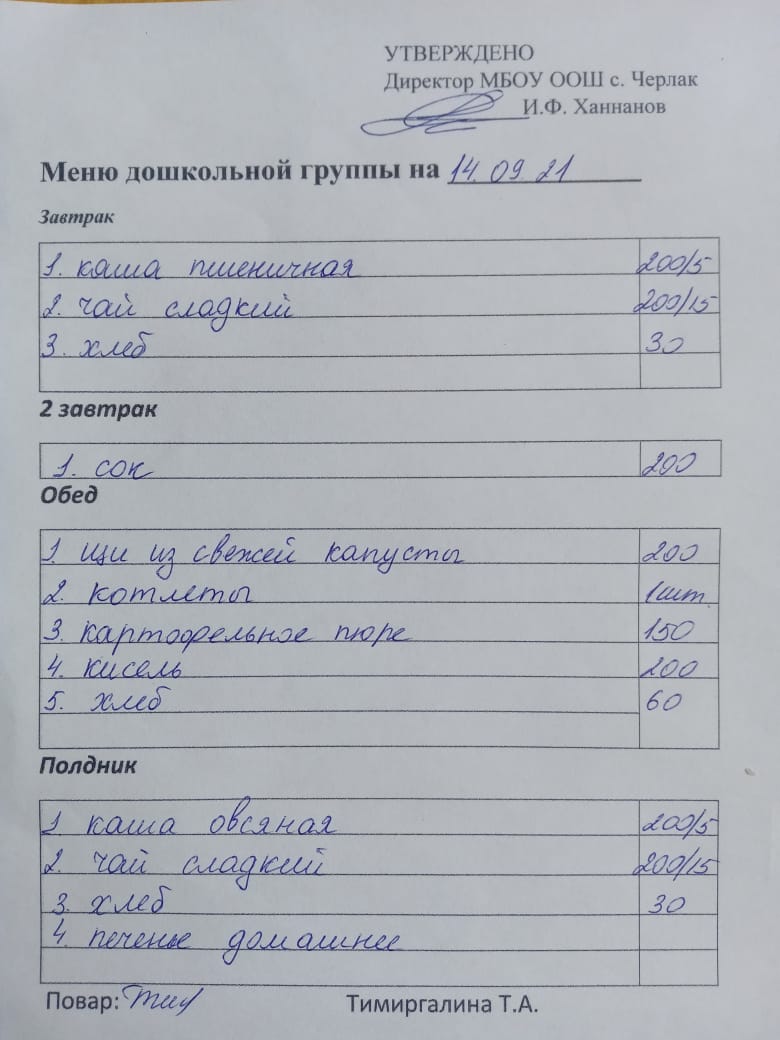 УТВЕРЖДЕНО
Директор МБОУ ООШ с. Черлак
И.Ф. Ханнанов
Меню дошкольной группы на 14.09.21
Завтрак
1. каша пшеничная 200/5
2. чай сладкий 200/15
3. хлеб 30
2 завтрак
1. сок 200
Обед
1. щи из свежей капусты 200
2. котлеты 1шт.
3. картофельное пюре 150
4. кисель 200
5. хлеб 60
Полдник
1. каша овсяная 200/5
2. чай сладкий 200/15
3. хлеб 30
4. печенье домашнее
Повар: Тимиргалина Т.А.